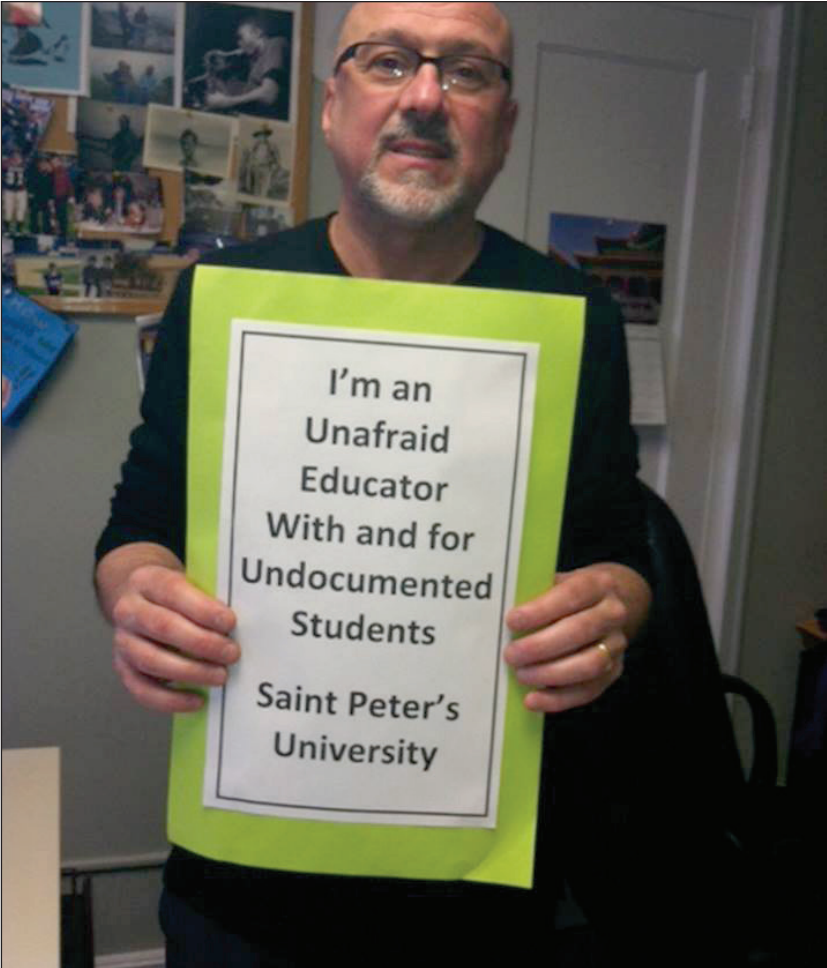 I'm an
Unafraid
Educator
With and for
Undocumented
Students
Saint Peter's
University